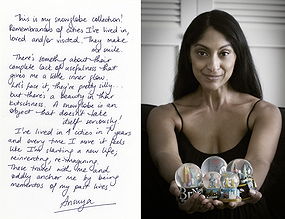 This is my snowglobe collection!
Remembrances of cities I've lived in,
loved and/or visited. They make
me smile.
There's something about their
complete lack of usefulness that
gives me a little inner glow.
Let's face it, they're pretty silly...
but there's a beauty in their
kutschness. A snowglobe is an
object that doesn't take
itself seriously!
I've lived in 4 cities in 7 years
and every time I move it feels
like I'm starting a new life;
reinventing, re-imagining.
These travel with me and
oddly anchor me by being
mementos of my past lives.
Ansuya